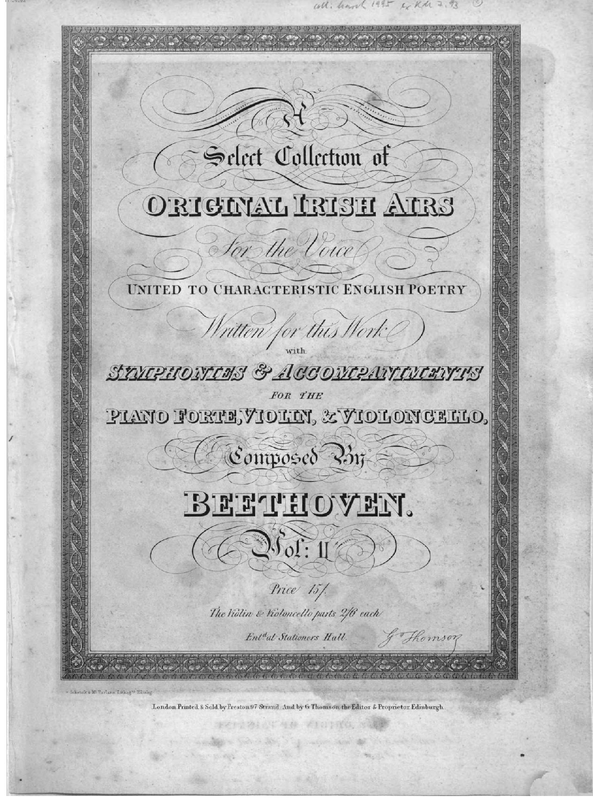 A
Select Collection of
ORIGINAL IRISH AIRS
For the Voice
UNITED TO CHARACTERISTIC ENGLISH POETRY
Written for this Work
with
SYMPHONIES & ACCOMPANIMENTS
FOR THE
PIANO FORTE, VIOLIN, & VIOLONCELLO,
Composed By
BEETHOVEN.
Vol: II
Price 15/
The Violin & Violoncello parts 2/6 each
Ent.d at Stationers Hall
G Thomson
London Printed & Sold by Preston 97 Strand. And by G Thomson the Editor & Proprietor Edinburgh.